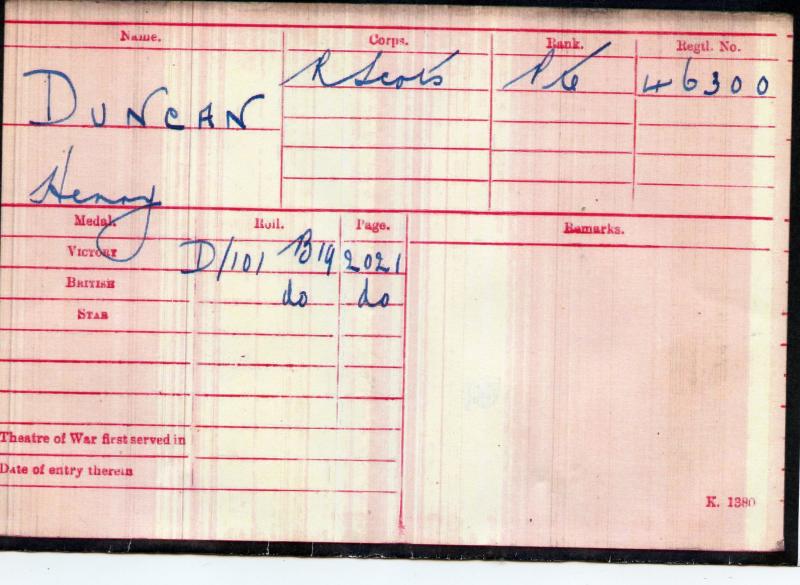 Name. Corps. Rank. Regtl. No.
DUNCAN R Scots Pte 46300
Henry
Medal. Roll. Page. Remarks.
VICTORY D/101 B19 2021
BRITISH do do
STAR
Theatre of War first served in
Date of entry therein
K. 1380